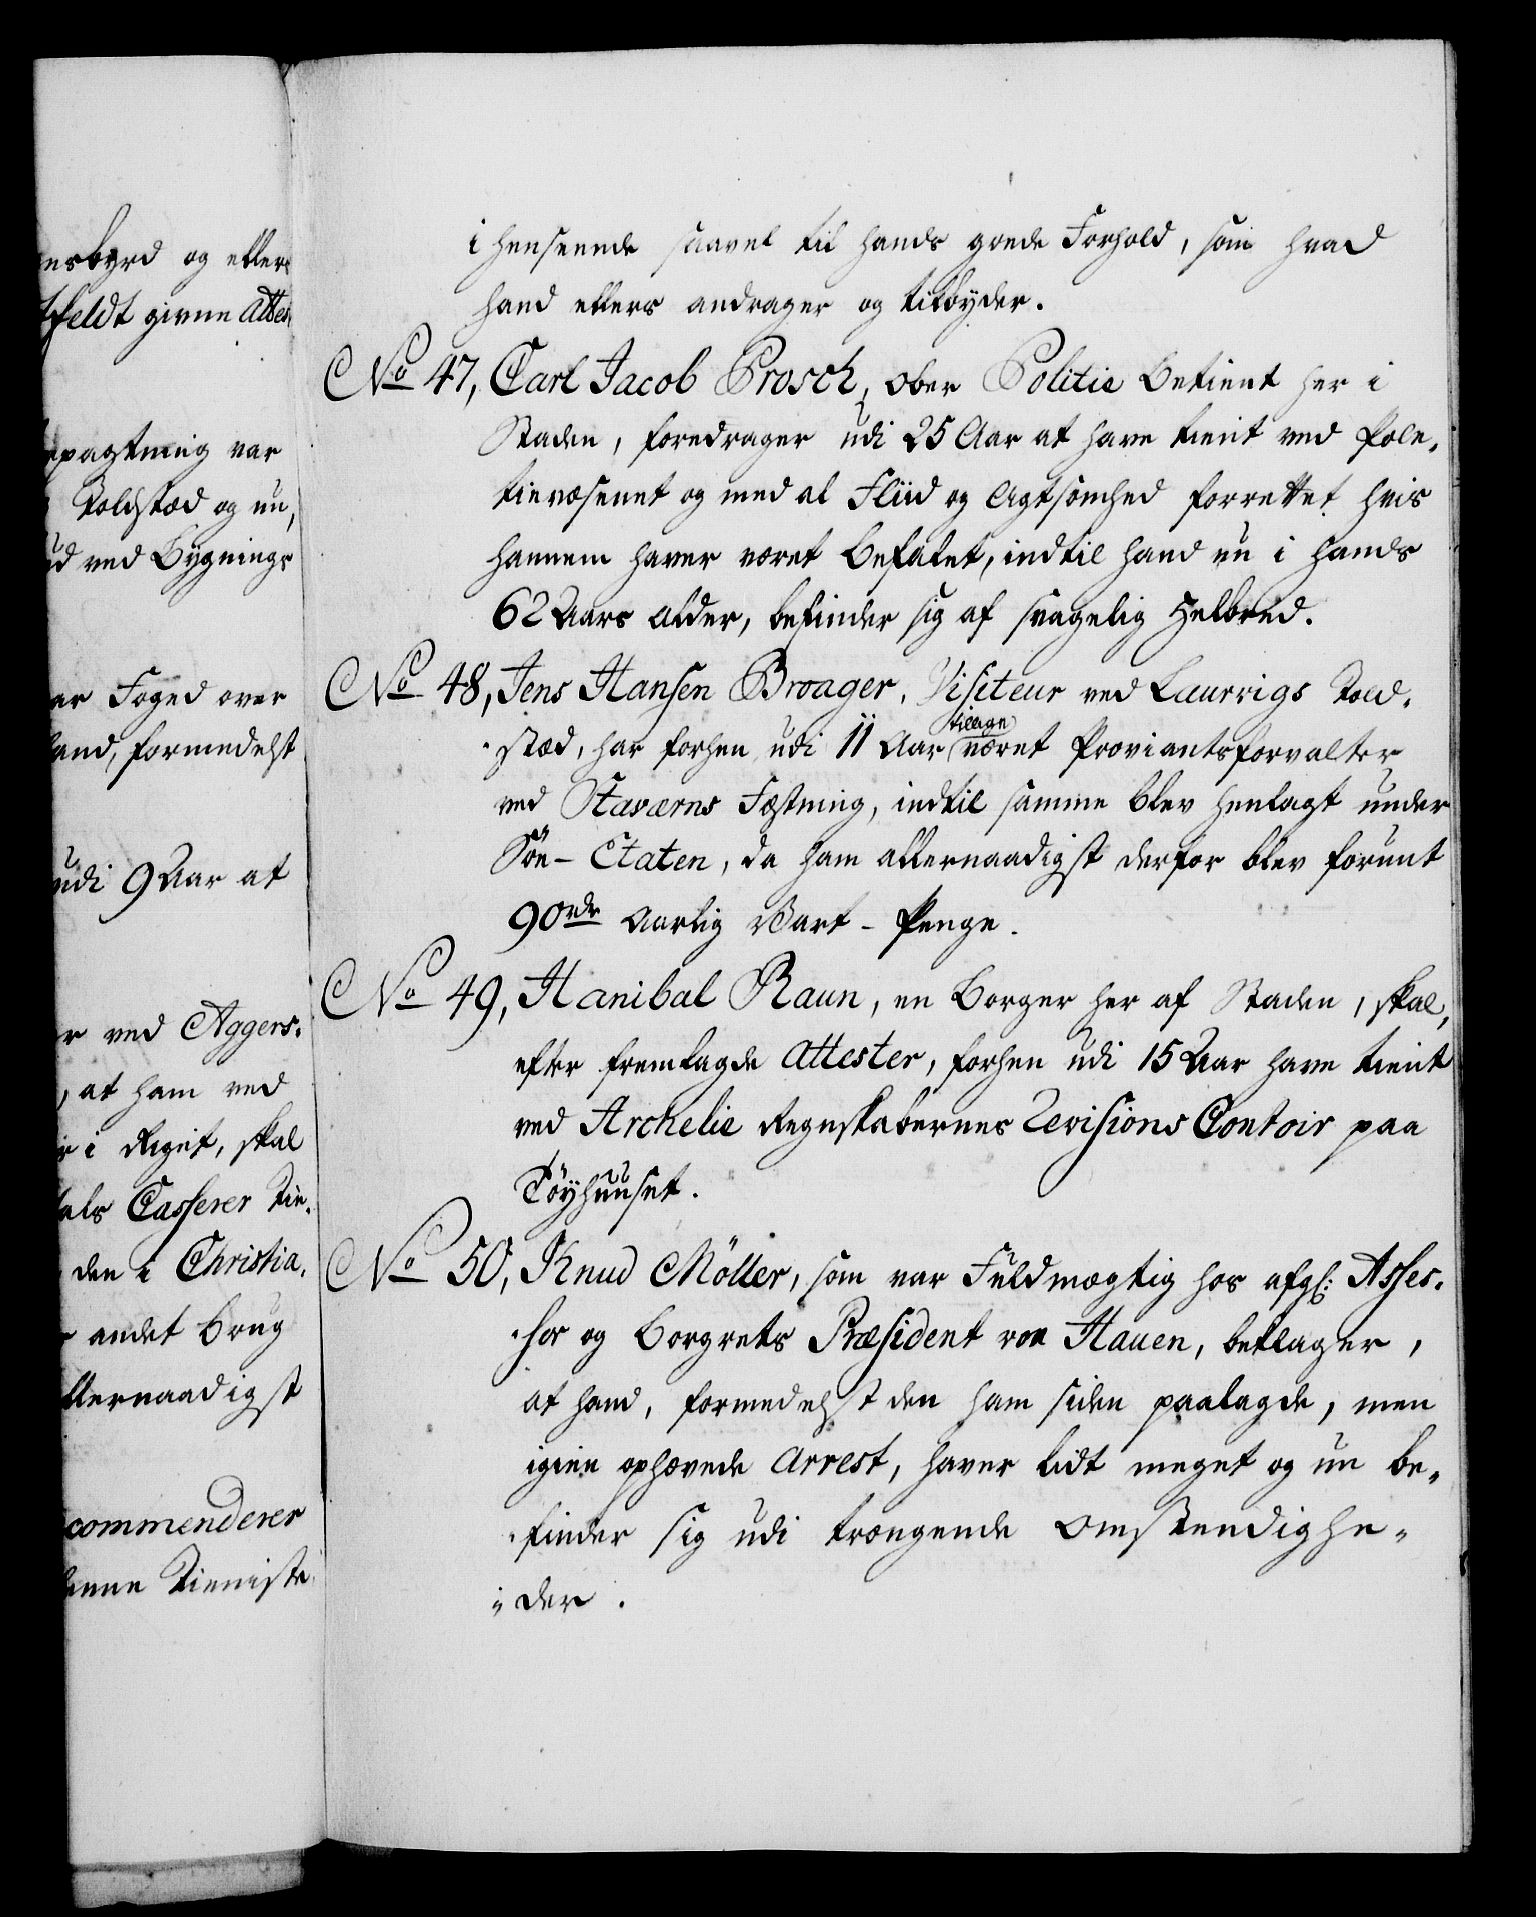 ensbyrd og ellers
tfeldt givne Attes
epagtning var
Toldstæd og nu,
ud ved Bygnings
ar Foged over
land, formedelst
udi 9 Aar at
r ved Aggers-
, at ham ved
ir i Riget, skal
als Casserer Tie-
den i Christia-
andet brug
llernaadigst
commenderer
denne Tieniste
i henseende saavel til hands goede Forhold, som hvad
hand ellers andrager og tilbÿder.
No 47, Carl Jacob Prosch, Ober Politie Betient her i
Staden, foredrager udi 25 Aar at have tient ved Pole-
tievæsenet og med al Fliid og Agtsomhed forrettet hvis
hannem haver været befalet, indtil hand nu i hands
62 Aars Alder, befinder sig af svagelig Helbred.
No 48, Jens Hansen Broager, Visiteur ved Laurvigs Told-
stæd, har forhen udi 11 Aar tillige været Proviantsforvalter
ved Staværns Fæstning, indtil samme blev henlagt under
Söe-Etaten, da ham allernaadigst derfor blev forunt
90 rdr Aarlig Vart-Penge.
No 49, Hanibal Raun, en Borger her af Staden, skal,
efter fremlagde Attester, forhen udi 15 Aar have tient
ved Archelie Regnskabernes Revisions Contoir paa
Töyhuuset.
No 50, Knud Möller, som var Fuldmægtig hos afgl: Asses-
sor og Borgrets Præsident von Hauen, beklager,
at hand, formedelst den ham siden paalagde, men
igien ophævede Arrest, haver lidt meget og nu be-
finder sig udi trængende Omstendighe-
der.